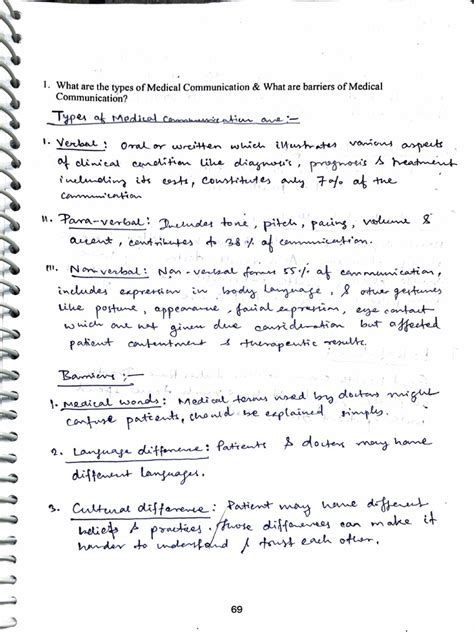 1. What are the types of Medical Communication & What are barriers of Medical
Communication?
Types of Medical Communication are :-
I. Verbal : Oral or written which illustrates various aspects
of clinical condition like diagnosis, prognosis & treatment
including its costs, constitutes only 7% of the
communication
II. Para-verbal : Includes tone, pitch, pacing, volume &
accent, contributes to 38% of communication.
III. Non verbal : Non-verbal forms 55% of communication,
includes expression in body language, & other gestures
like posture, appearance, facial expression, eye contact
which are not given due consideration but affected
patient contentment & therapeutic results.
Barriers :-
1. Medical words : Medical terms used by doctors might
confuse patients, should be explained simples.
2. Language difference : Patients & doctors may have
different languages.
3. Cultural difference : Patient may have different
beliefs & practices. Those differences can make it
harder to understand & trust each other.
69